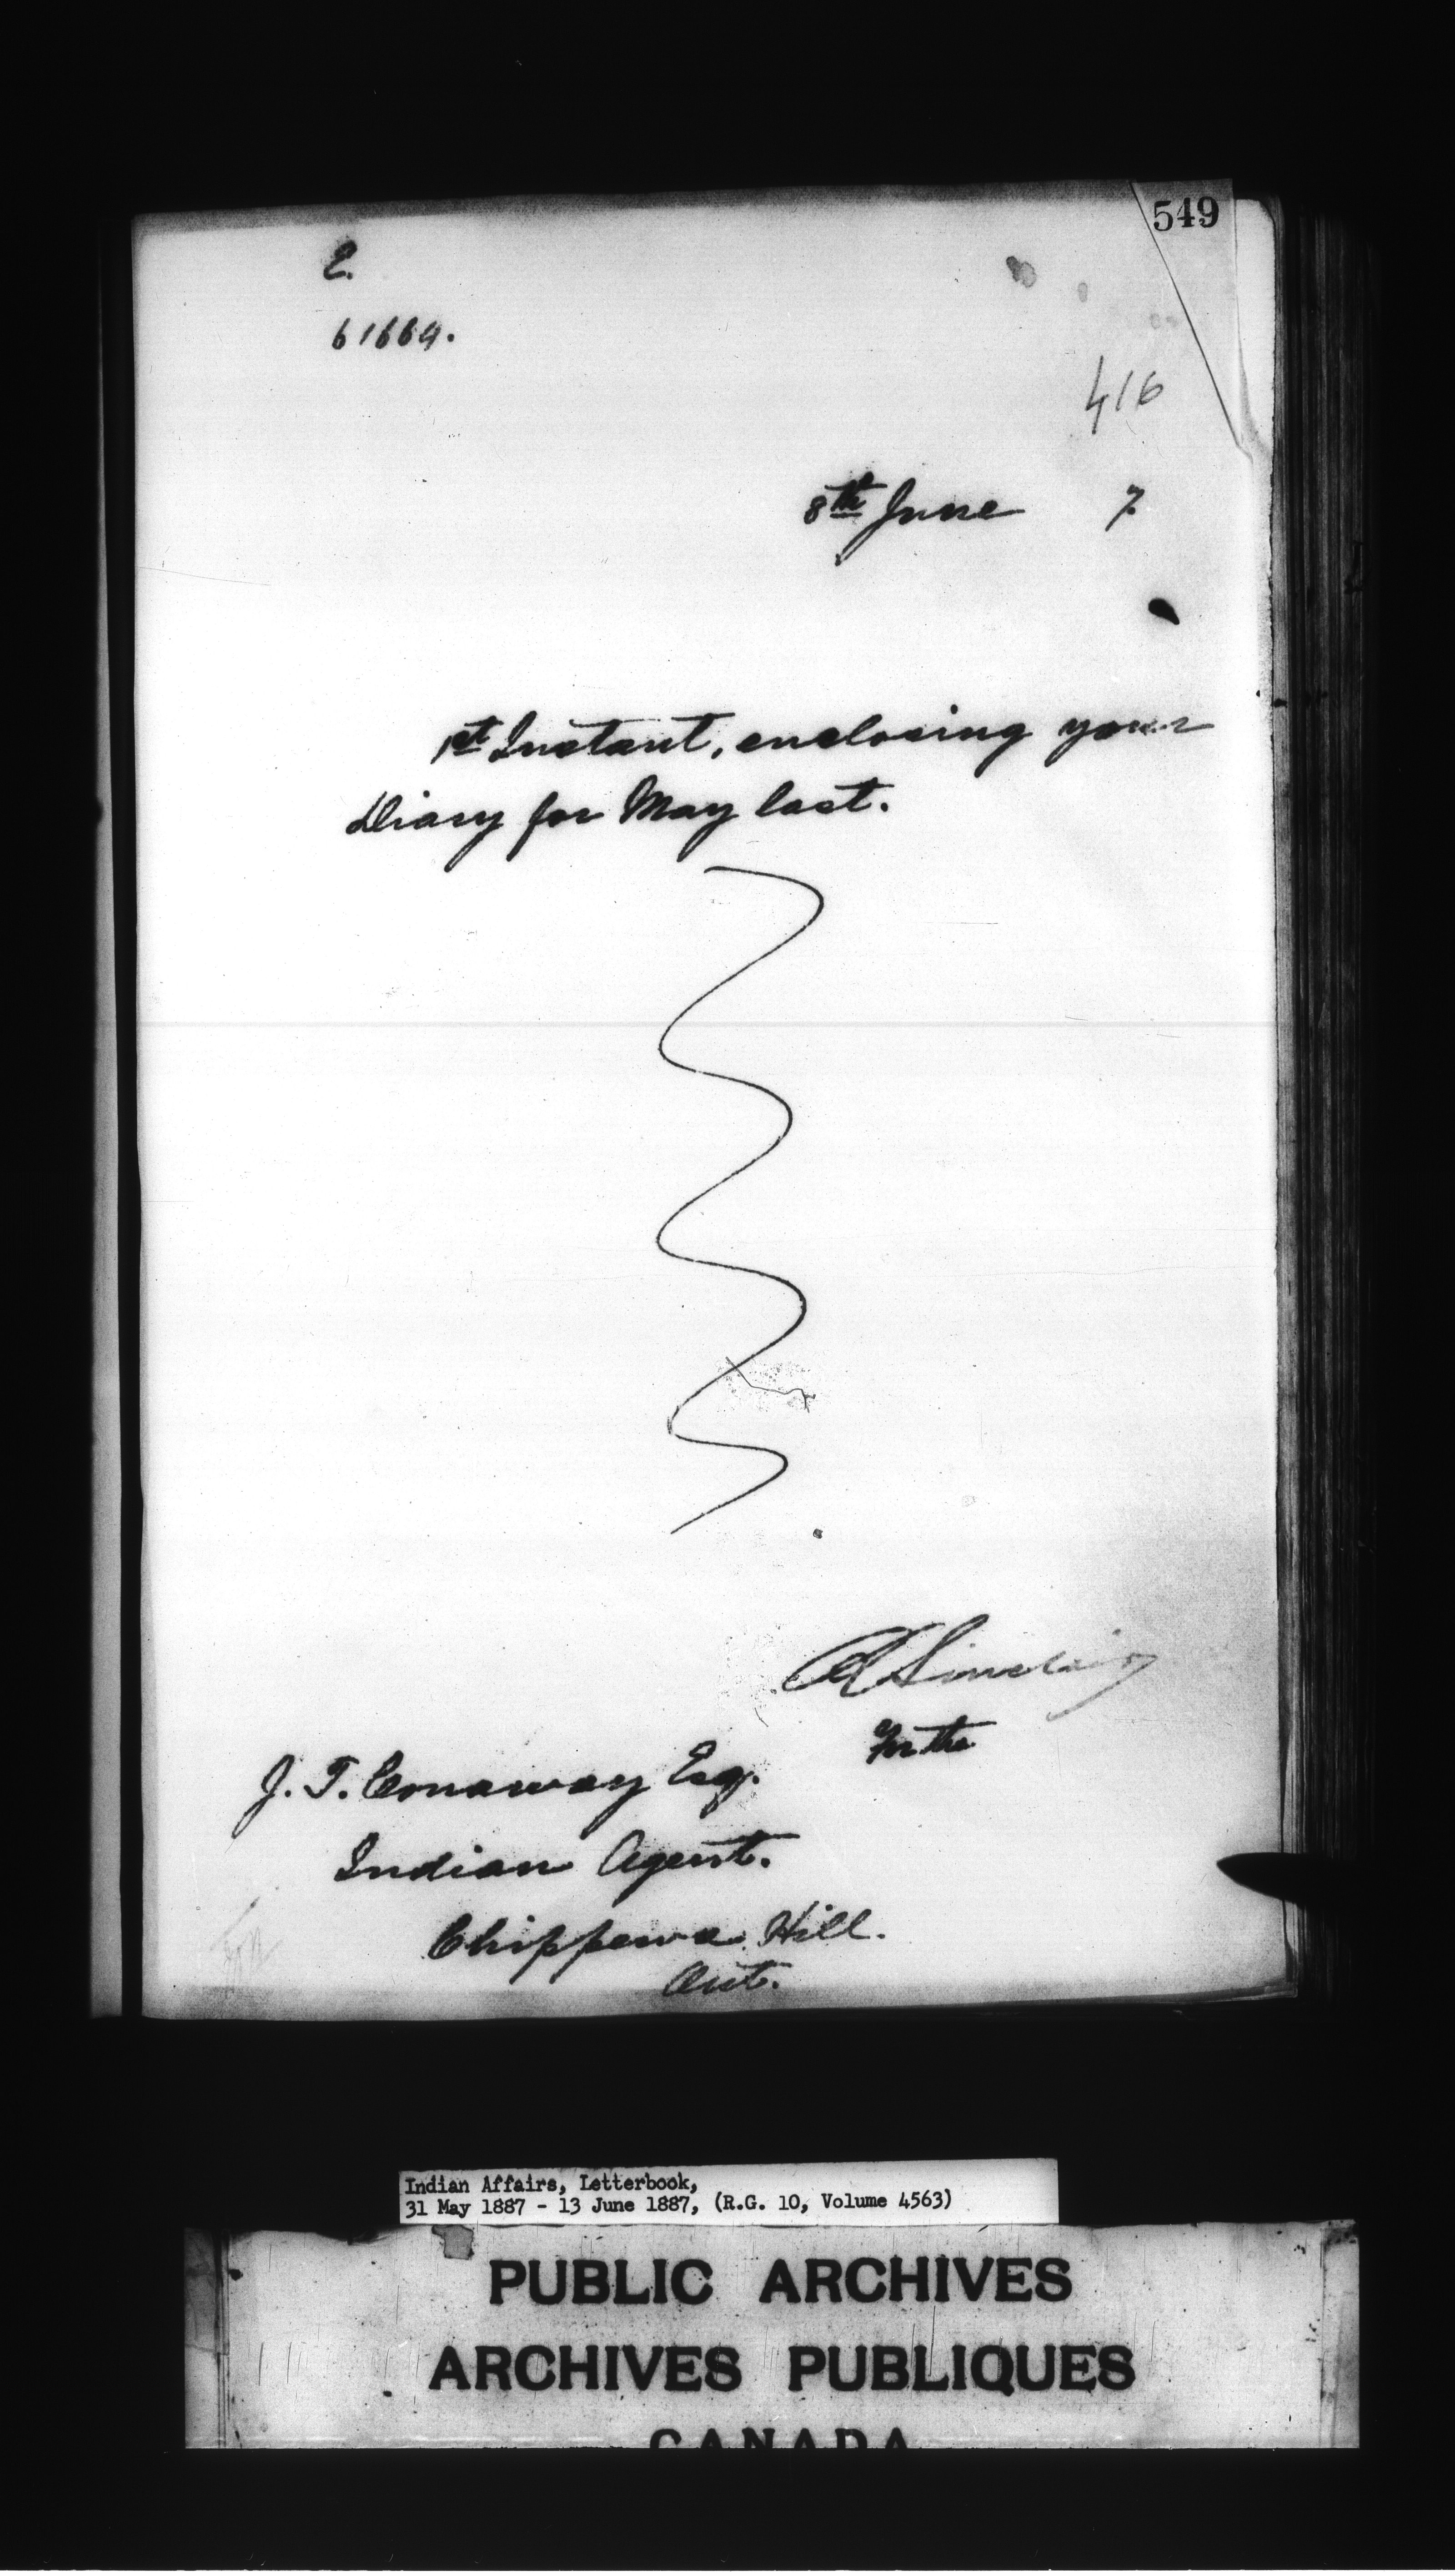 549
E.
61664.
416
8th June 7.
1st Instant, enclosing your
Diary for May last.
A Sinclair
For the
J. T. Conaway Esq.
Indian Agent.
Chippewa Hill.
Ont.
Indian Affairs, Letterbook,
31 May 1887 - 13 June 1887, (R.G. 10, Volume 4563)
PUBLIC ARCHIVES
ARCHIVES PUBLIQUES
CANADA